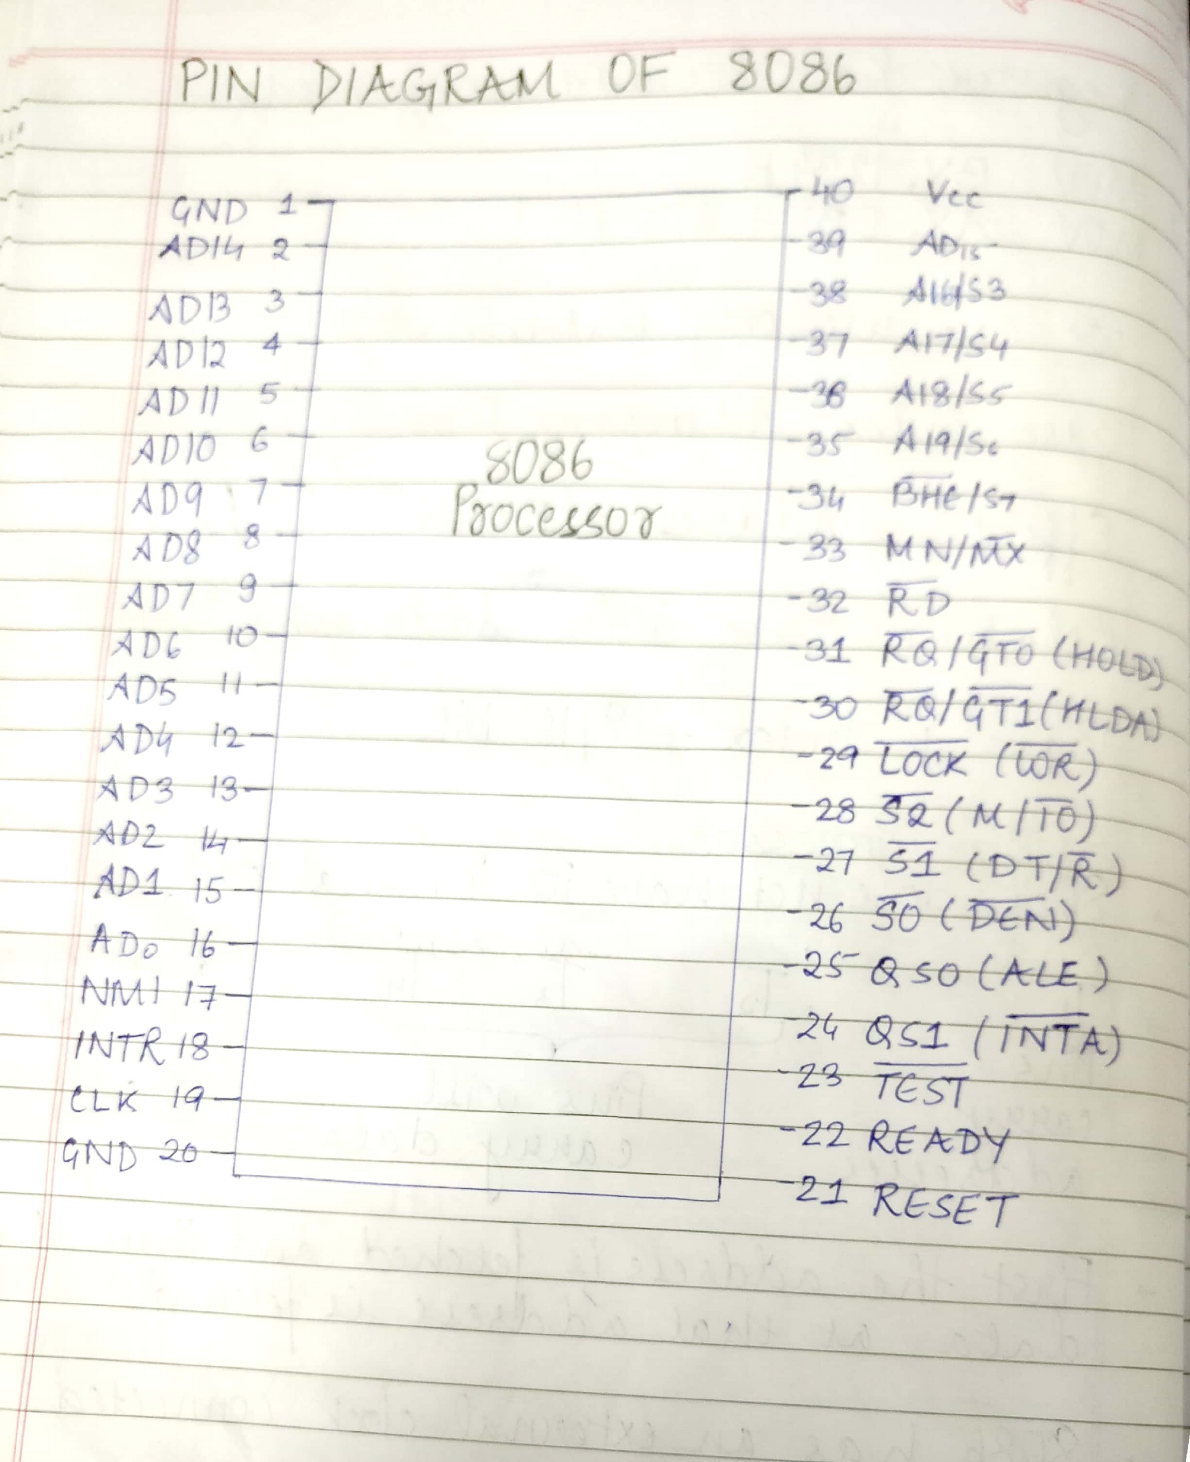 PIN DIAGRAM OF 8086
GND 1
AD14 2
AD13 3
AD12 4
AD11 5
AD10 6
AD9 7
AD8 8
AD7 9
AD6 10
AD5 11
AD4 12
AD3 13
AD2 14
AD1 15
AD0 16
NMI 17
INTR 18
CLK 19
GND 20
8086
Processor
40 Vcc
39 AD15
38 A16/S3
37 A17/S4
36 A18/S5
35 A19/S6
34 B̅H̅E̅/S7
33 MN/M̅X̅
32 R̅D̅
31 R̅Q̅/G̅T̅0̅ (HOLD)
30 R̅Q̅/G̅T̅1̅ (HLDA)
29 L̅O̅C̅K̅ (W̅R̅)
28 S̅2̅ (M/I̅O̅)
27 S̅1̅ (DT/R̅)
26 S̅0̅ (D̅E̅N̅)
25 QS0 (ALE)
24 QS1 (I̅N̅T̅A̅)
23 T̅E̅S̅T̅
22 READY
21 RESET